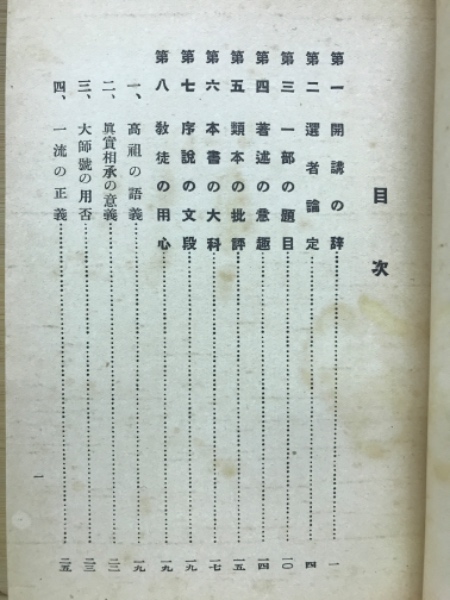 目次
第一 開講の辞 一
第二 選者論定 四
第三 一部の題目 一〇
第四 著述の意趣 一四
第五 類本の批評 一五
第六 本書の大科 一七
第七 序説の文段 一九
第八 教徒の用心 一九
一、高祖の語義 一九
二、眞實相承の意義 二二
三、大師號の用否 二三
四、一流の正義 二五
一